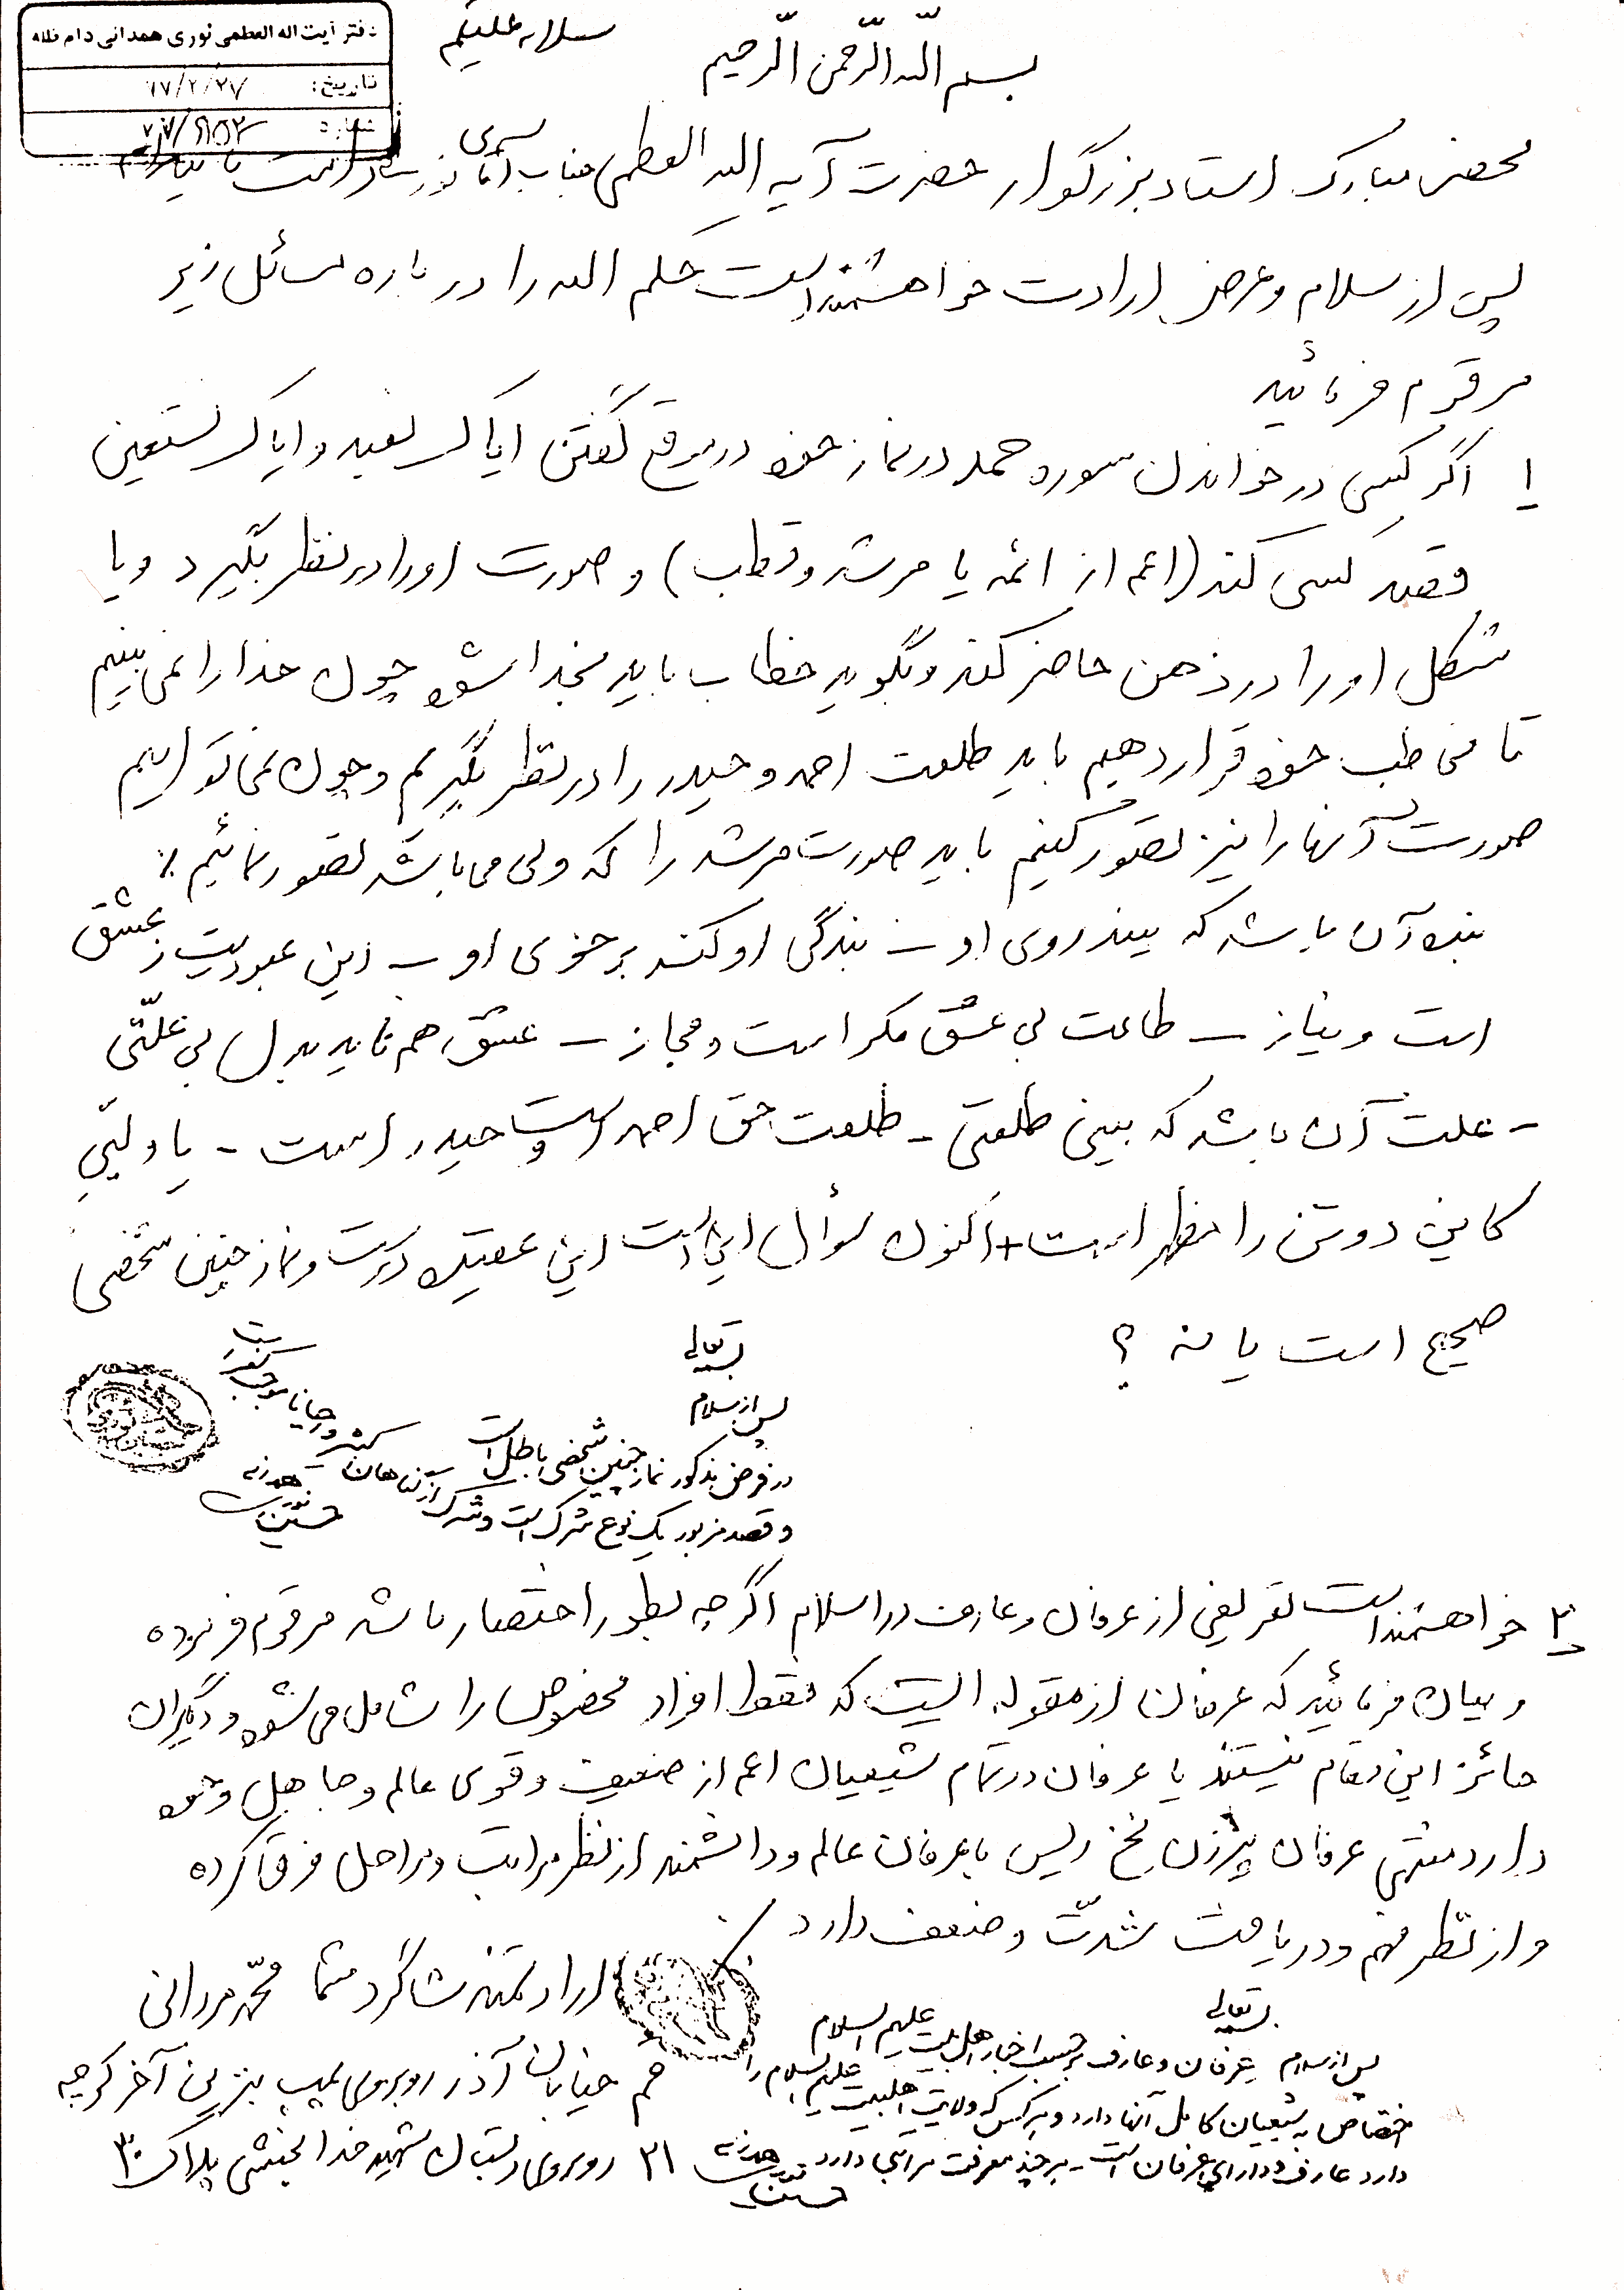 دفتر آیت اله العظمی نوری همدانی دام ظله
تاریخ: ۷۷/۲/۲۷
شماره
سلام علیکم
بسم الله الرّحمن الرّحیم
محضر مبارک استاد بزرگوار حضرت آیه الله العظمی جناب آقای
پس از سلام و عرض ارادت خواهشمند است حکم الله را در باره مسائل زیر
مرقوم فرمائید
۱ اگر کسی در خواندن سوره حمد در نماز خود در موقع گفتن ایاک نعبد و ایاک نستعین
قصد کسی کند (اعم از ائمه یا مرشد و قطب) و صورت او را در نظر بگیرد و یا
شکل او را در ذهن حاضر کند و بگوید خطاب باید بخدا شود چون خدا را نمی بینیم
تا مخاطب خود قرار دهیم باید طلعت احمد و حیدر را در نظر بگیریم و چون نمی توانیم
صورت آنها را نیز تصور کنیم باید صورت مرشد را که ولی می باشد تصور نمائیم
بنده آن باشد که بیند روی او - بندگی او کند بر خوی او - این عبودیت ز عشق
است و نیاز - طاعت بی عشق مکر است و مجاز - عشق هم ناید بدل بی علّتی
- علت آن باشد که بینی طلعتی - طلعت حق احمد است و حیدر است - یا ولیّی
کاین دو تن را مظهر است + اکنون سؤال این است این عقیده درست و نماز چنین شخصی
صحیح است یا نه ؟
بسمه تعالی
پس از سلام
در فرض مذکور نماز چنین شخصی باطل است
و قصد مزبور یک نوع شرک است و شرک از گناهان کبیره و احیانا موجب کفر است
حسین نوری همدانی
۲ خواهشمند است تعریفی از عرفان و عارف در اسلام اگر چه بطور اختصار باشد مرقوم فرموده
و بیان فرمائید که عرفان از مقوله ایست که فقط افراد مخصوص را شامل می شود و دیگران
حائز این مقام نیستند یا عرفان در تمام شیعیان اعم از ضعیف و قوی عالم و جاهل وجود
دارد منتهی عرفان پیرزن نخ ریس با عرفان عالم و دانشمند از نظر مراتب و مراحل فرق کرده
و از نظر فهم و دریافت شدّت و ضعف دارد
ارادتمند شاگرد شما محمّد مردانی
قم خیابان آذر روبروی پمپ بنزین آخر کوچه
۳۱ روبروی دبستان شهید خدابخشی پلاک ۳۰
بسمه تعالی
پس از سلام عرفان و عارف بر حسب اخبار اهل بیت علیهم السلام
اختصاص به شیعیان کامل آنها دارد و هر کس که ولایت اهلبیت علیهم السلام را
دارد عارف و دارای عرفان است - هر چند معرفت مراتبی دارد
حسین نوری همدانی